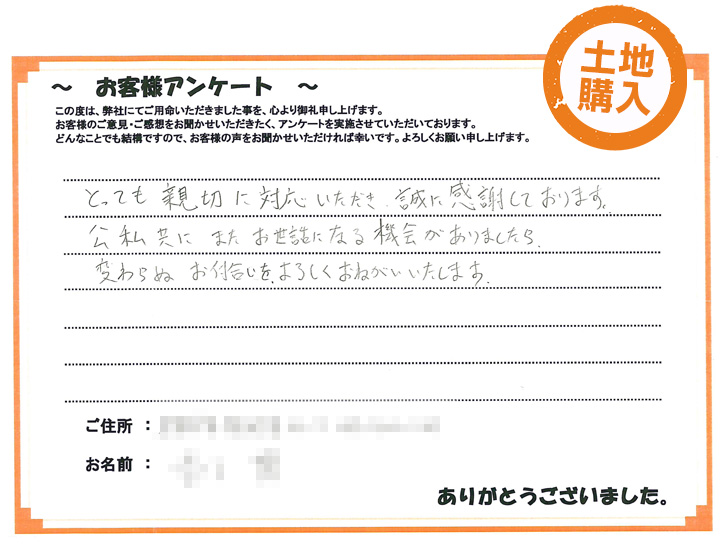 土地
購入
～ お客様アンケート ～
この度は、弊社にてご用命いただきました事を、心より御礼申し上げます。
お客様のご意見・ご感想をお聞かせいただきたく、アンケートを実施させていただいております。
どんなことでも結構ですので、お客様の声をお聞かせいただければ幸いです。よろしくお願い申し上げます。
とっても親切に対応いただき、誠に感謝しております。
公私共に またお世話になる機会がありましたら、
変わらぬ お付合いを、よろしくおねがいいたします。
ご住所 ：
お名前 ：
ありがとうございました。